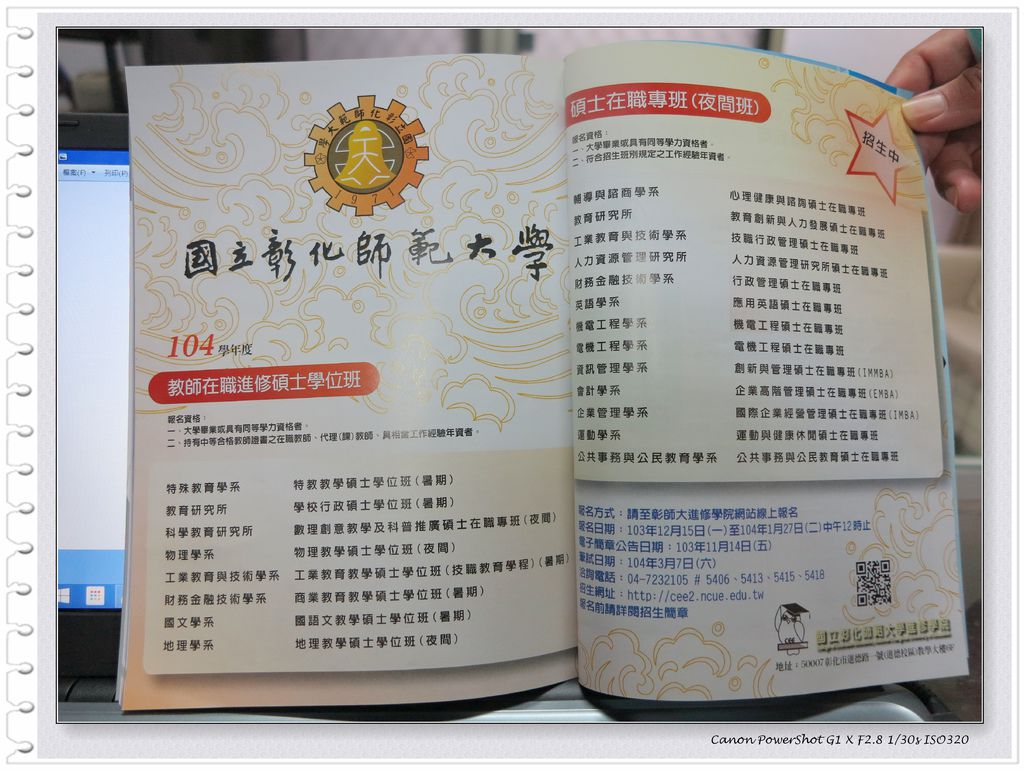 檔案(F)
列印(P)
國立彰化師範大學
1971
國立彰化師範大學
104 學年度
教師在職進修碩士學位班
報名資格：
一、大學畢業或具有同等學力資格者。
二、持有中等合格教師證書之在職教師、代理(課)教師、具相當工作經驗年資者。
特殊教育學系 特教教學碩士學位班(暑期)
教育研究所 學校行政碩士學位班(暑期)
科學教育研究所 數理創意教學及科普推廣碩士在職專班(夜間)
物理學系 物理教學碩士學位班(夜間)
工業教育與技術學系 工業教育教學碩士學位班(技職教育學程)(暑期)
財務金融技術學系 商業教育教學碩士學位班(暑期)
國文學系 國語文教學碩士學位班(暑期)
地理學系 地理教學碩士學位班(夜間)
碩士在職專班(夜間班)
招生中
報名資格：
一、大學畢業或具有同等學力資格者。
二、符合招生班別規定之工作經驗年資者。
輔導與諮商學系 心理健康與諮詢碩士在職專班
教育研究所 教育創新與人力發展碩士在職專班
工業教育與技術學系 技職行政管理碩士在職專班
人力資源管理研究所 人力資源管理研究所碩士在職專班
財務金融技術學系 行政管理碩士在職專班
英語學系 應用英語碩士在職專班
機電工程學系 機電工程碩士在職專班
電機工程學系 電機工程碩士在職專班
資訊管理學系 創新與管理碩士在職專班(IMMBA)
會計學系 企業高階管理碩士在職專班(EMBA)
企業管理學系 國際企業經營管理碩士在職專班(IMBA)
運動學系 運動與健康休閒碩士在職專班
公共事務與公民教育學系 公共事務與公民教育碩士在職專班
報名方式：請至彰師大進修學院網站線上報名
報名日期：103年12月15日(一)至104年1月27日(二)中午12時止
電子簡章公告日期：103年11月14日(五)
筆試日期：104年3月7日(六)
洽詢電話：04-7232105 # 5406、5413、5415、5418
招生網址：http://cee2.ncue.edu.tw
報名前請詳閱招生簡章
CEE
國立彰化師範大學進修學院
地址：50007彰化市進德路一號(進德校區)教學大樓6F
Canon PowerShot G1 X F2.8 1/30s ISO320